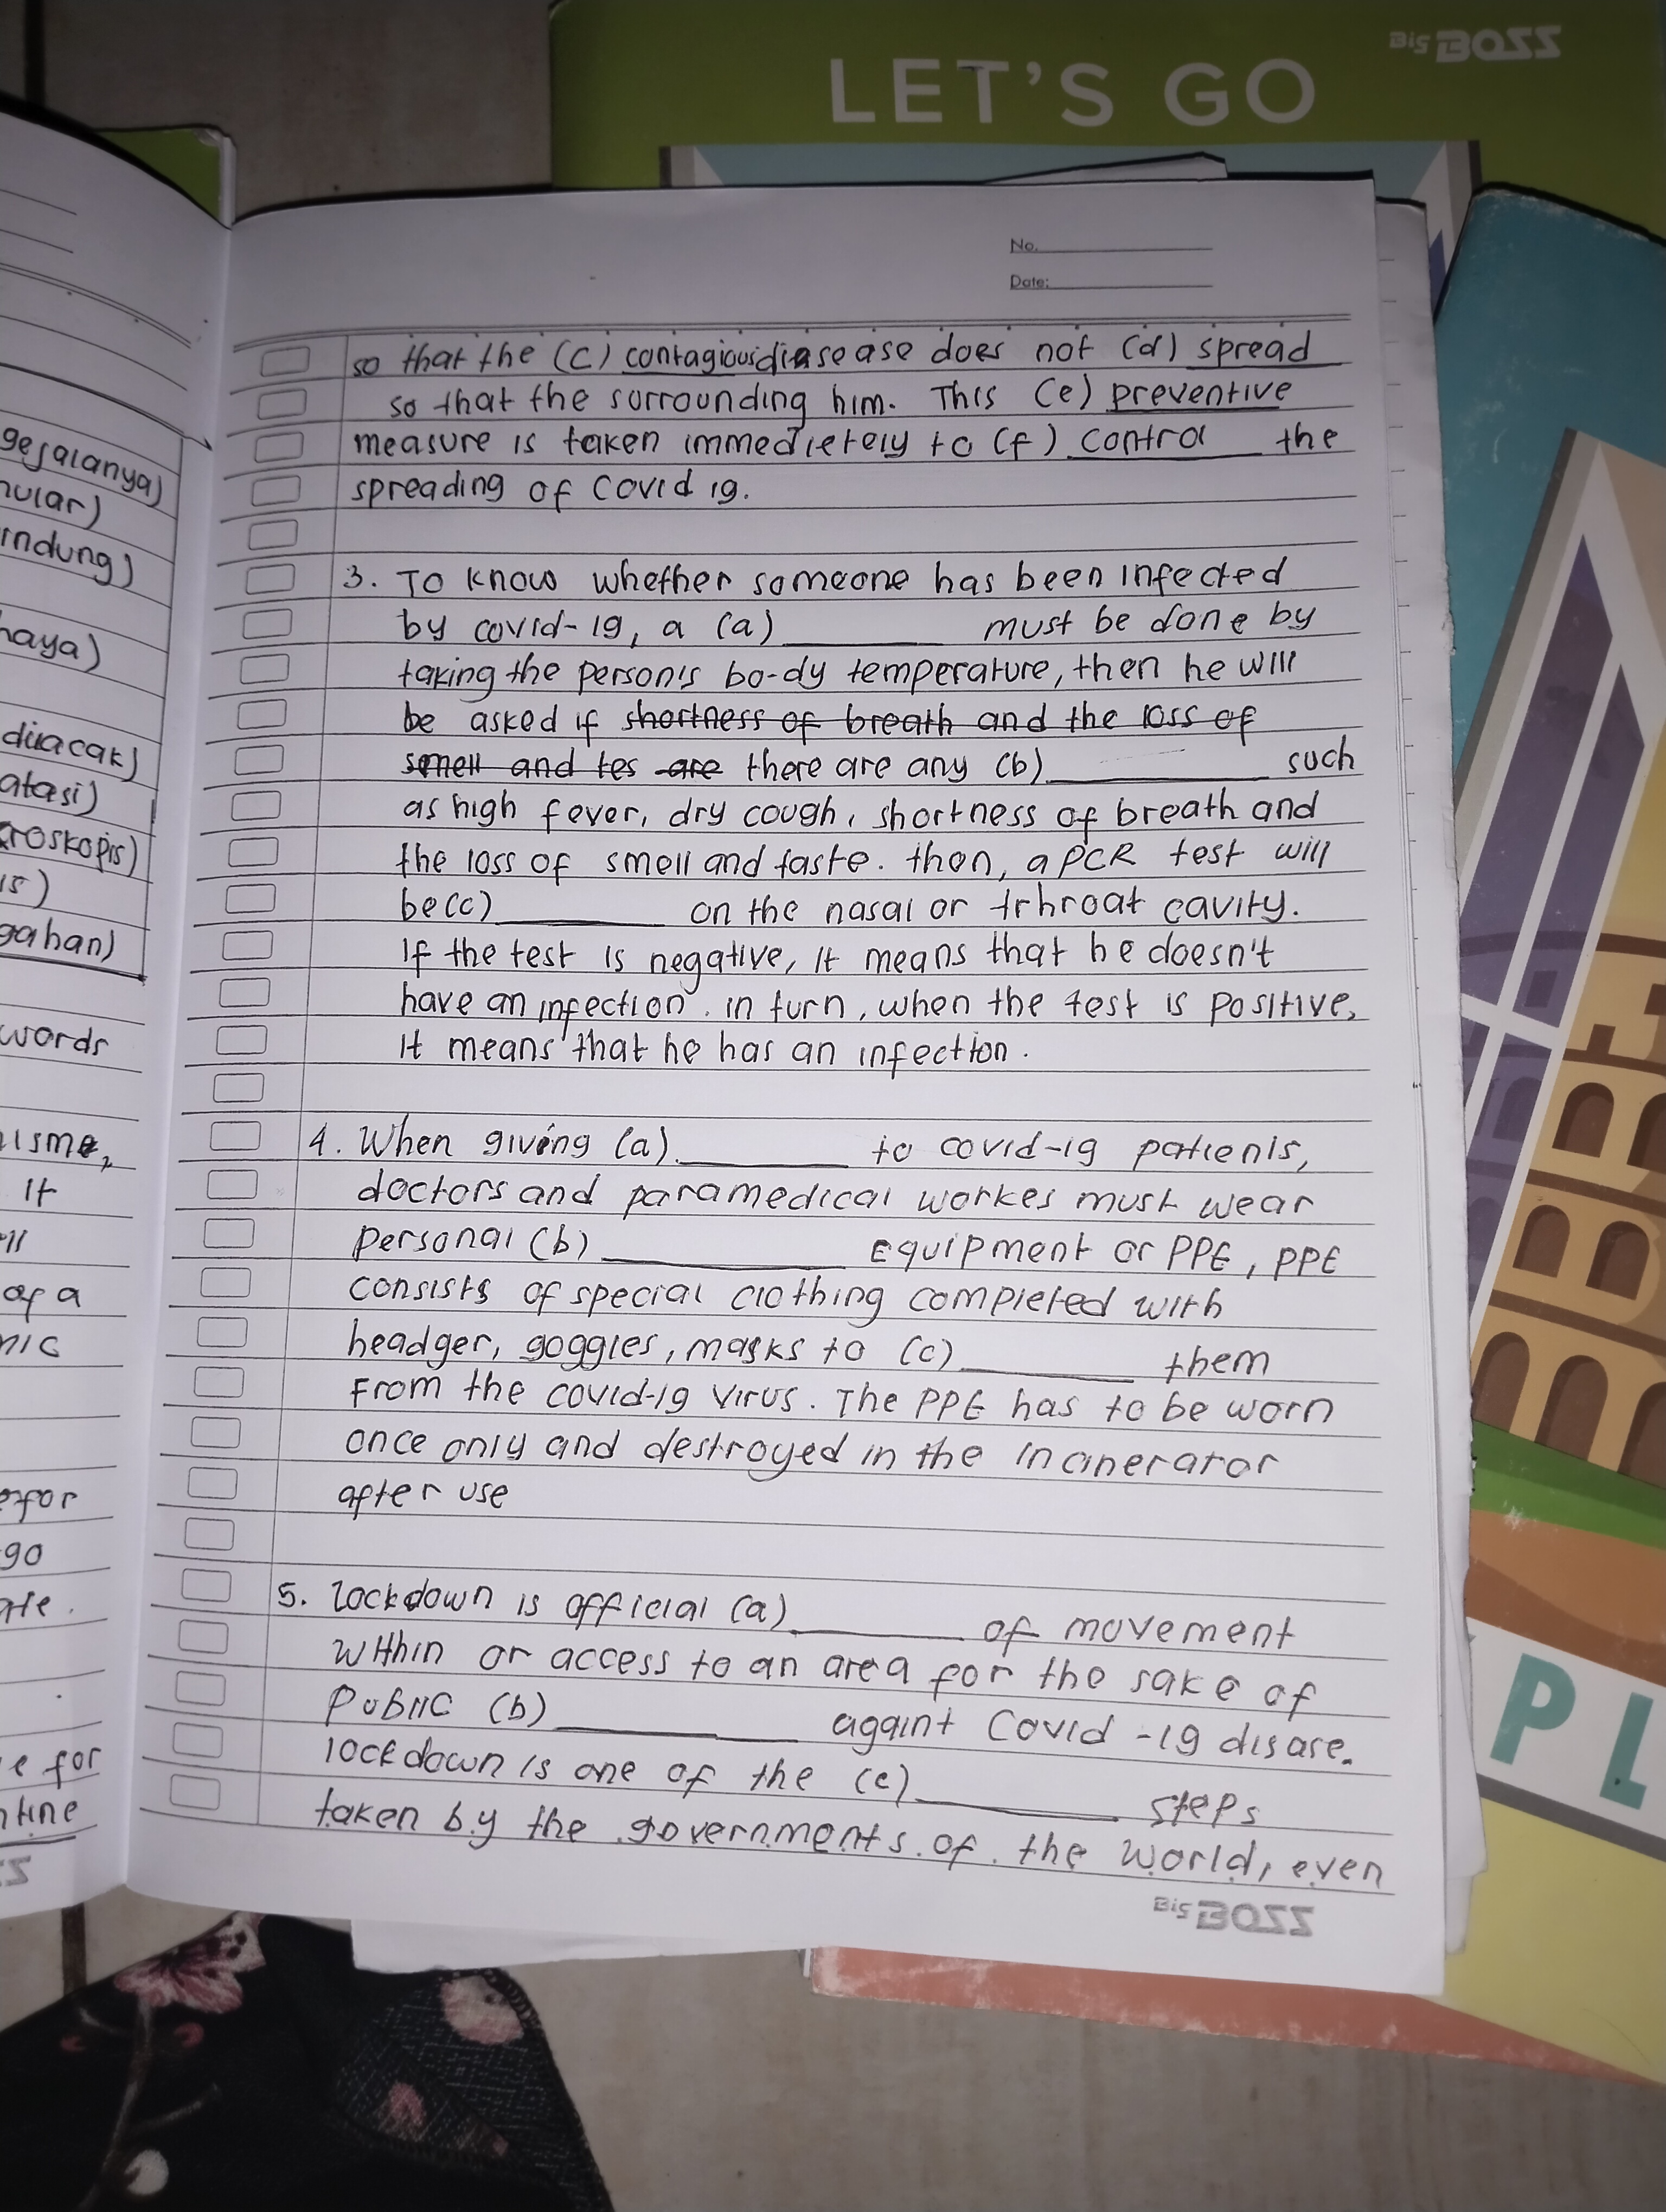 Big BOSS
LET'S GO
No.
Date:
so that the (c) contagious diasease does not (d) spread
so that the surrounding him. This (e) preventive
measure is taken immedietely to (f) control the
spreading of Covid 19.
3. To know whether someone has been infected
by covid-19, a (a) ________ must be done by
taking the person's bo-dy temperature, then he will
be asked if shortness of breath and the loss of
smell and tes are there are any (b) ________ such
as high fever, dry cough, shortness of breath and
the loss of smell and taste. then, a PCR test will
be (c) ________ on the nasal or trhroat cavity.
If the test is negative, it means that he doesn't
have an infection. in turn, when the test is positive,
it means that he has an infection.
4. When giving (a) ________ to covid-19 patients,
doctors and paramedical workes must wear
personal (b) ________ Equipment or PPE, PPE
consists of special clothing completed with
headger, goggles, masks to (c) ________ them
From the covid-19 virus. The PPE has to be worn
once only and destroyed in the incinerator
after use
5. lockdown is official (a) ________ of movement
within or access to an area for the sake of
public (b) ________ againt Covid -19 disase.
lockdown is one of the (c) ________ steps
taken by the governments of the world, even
Big BOSS
gejalanya)
nular)
indung)
haya)
diiacak)
atasi)
kroskopis)
is)
gahan)
words
nisme,
it
of a
nic
for
go
e for
ntine
PL